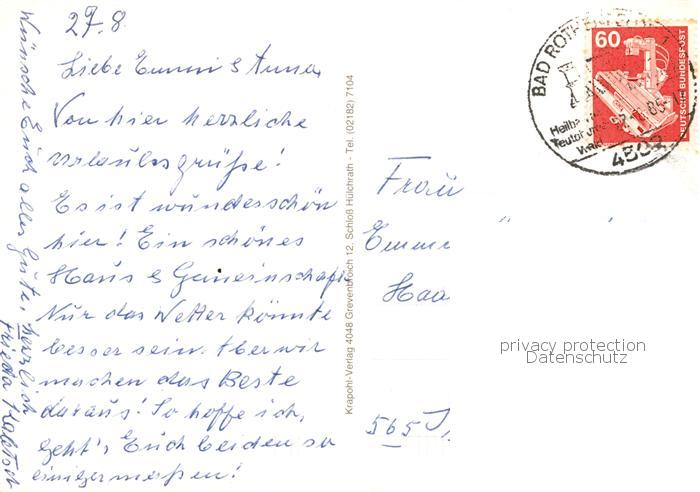 27.8
Liebe Emmi & Anna
Von hier herzliche
Urlaubsgrüße!
Es ist wunderschön
hier! Ein schönes
Haus & Gemeinschaft
Nur das Wetter könnte
besser sein. Aber wir
machen das Beste
daraus! So hoffe ich,
geht's Euch beiden so
einigermaßen!
Wünsche Euch alles Gute, herzlich
Frieda
Krapohl-Verlag 4048 Grevenbroich 12, Schloß Hülchrath - Tel. (02182) 7104
60
DEUTSCHE BUNDESPOST
BAD ROTHENFELDE
Heilbad
Teutoburger
Wald
4502
Frau
Emmi
Haa
565
privacy protection
Datenschutz